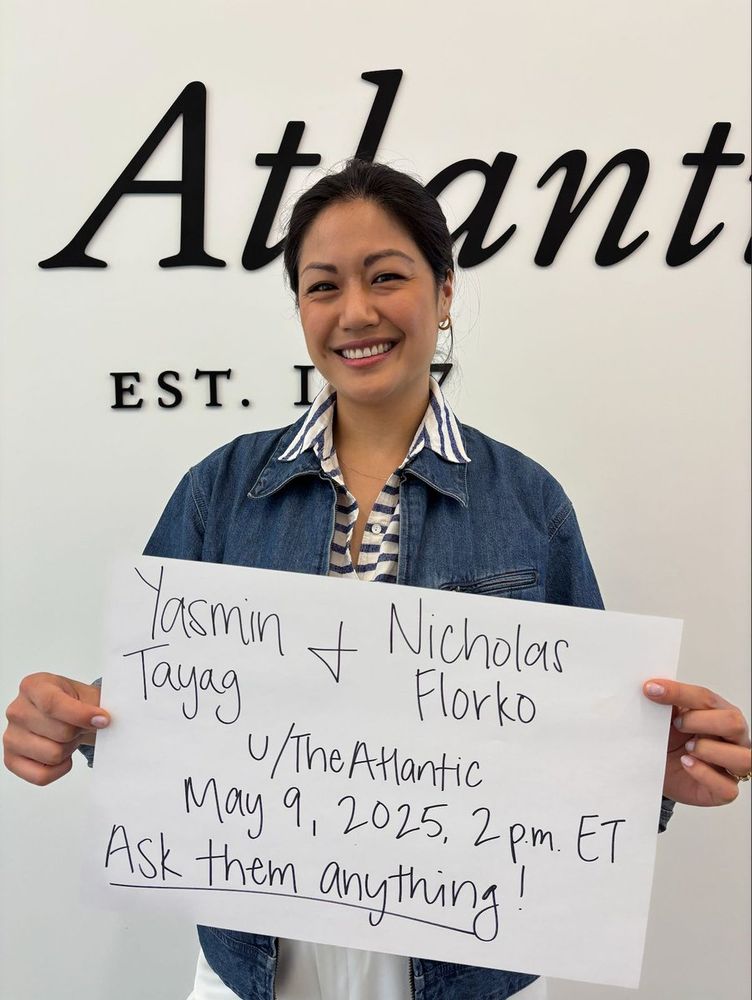 Atlant
EST. 1 7
Yasmin + Nicholas
Tayag Florko
u/TheAtlantic
May 9, 2025, 2 p.m. ET
Ask them anything!